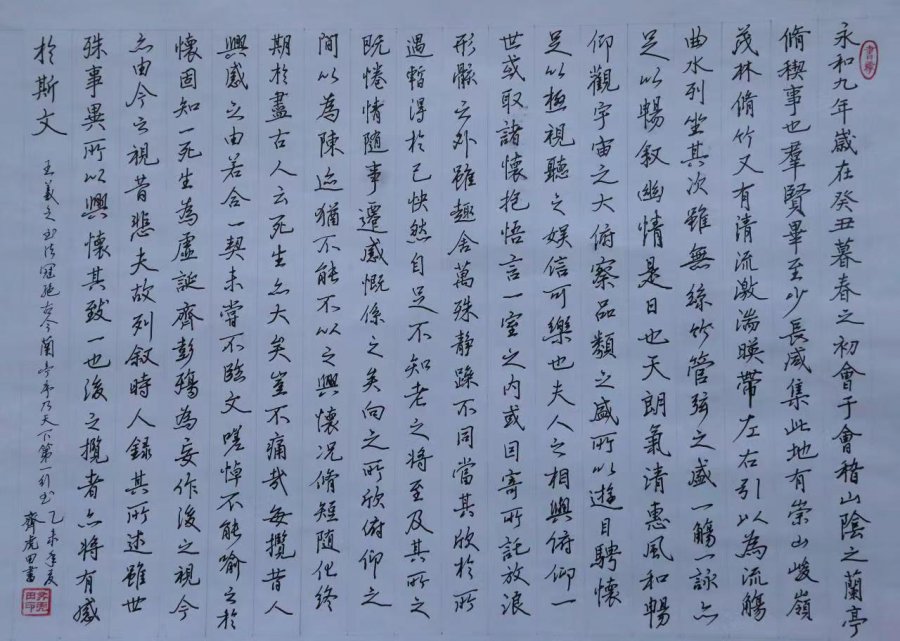 永和九年歲在癸丑暮春之初會于會稽山陰之蘭亭
脩稧事也羣賢畢至少長咸集此地有崇山峻嶺
茂林脩竹又有清流激湍暎帶左右引以為流觴
曲水列坐其次雖無絲竹管弦之盛一觴一詠亦
足以暢敘幽情是日也天朗氣清惠風和暢
仰觀宇宙之大俯察品類之盛所以遊目騁懷
足以極視聽之娛信可樂也夫人之相與俯仰一
世或取諸懷抱悟言一室之內或因寄所託放浪
形骸之外雖趣舍萬殊靜躁不同當其欣於所
遇暫得於己快然自足不知老之將至及其所之
既惓情隨事遷感慨係之矣向之所欣俯仰之
間以為陳迹猶不能不以之興懷況脩短隨化終
期於盡古人云死生亦大矣豈不痛哉每攬昔人
興感之由若合一契未嘗不臨文嗟悼不能喻之於
懷固知一死生為虛誕齊彭殤為妄作後之視今
亦由今之視昔悲夫故列敘時人錄其所述雖世
殊事異所以興懷其致一也後之攬者亦將有感
於斯文
王羲之書法冠絕古今蘭亭序乃天下第一行書
乙未年夏
齊虎田書